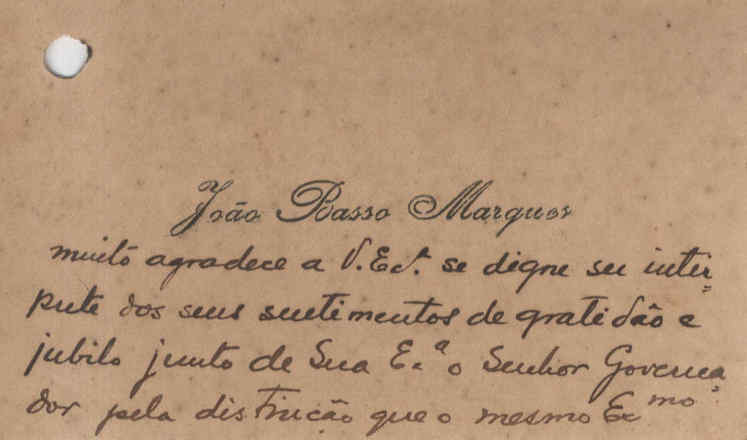 João Basso Marques
muito agradece a V. Ex.ª se digne ser intér=
prete dos seus sentimentos de gratidão e
jubilo junto de Sua Ex.ª o Senhor Governa
dor pela distinção que o mesmo Ex.mo